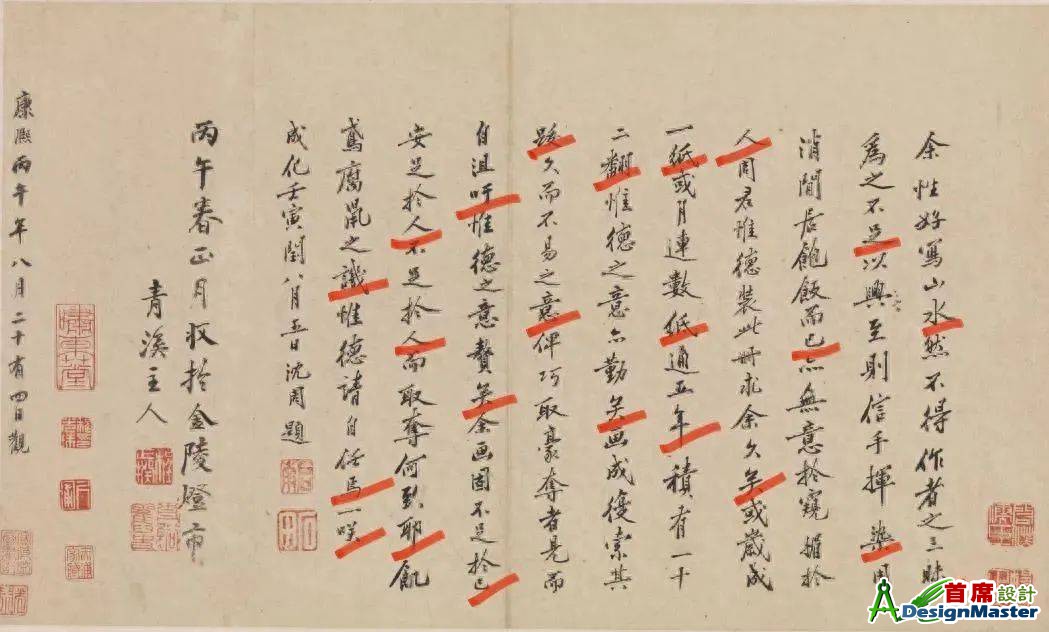 余性好寫山水然不得作者之三昧
為之不足以興至則信手揮染用
消閒居飽飯而已亦無意於窺媚於
人周君惟德裝此冊求余久矣或歲成
一紙或月連數紙通五年積有一十
二翻惟德之意亦勤矣画成復索其
跋久而不易之意俾巧取豪奪者見而
自沮吁惟德之意贅矣余画固不足於己
安足於人不足於人而取奪何致耶飢
鳶腐鼠之譏惟德請自任焉一咲
成化壬寅閏八月五日沈周題
丙午春正月収於金陵燈市
青溪主人
康熙丙午年八月二十有四日觀
首席設計
DesignMaster